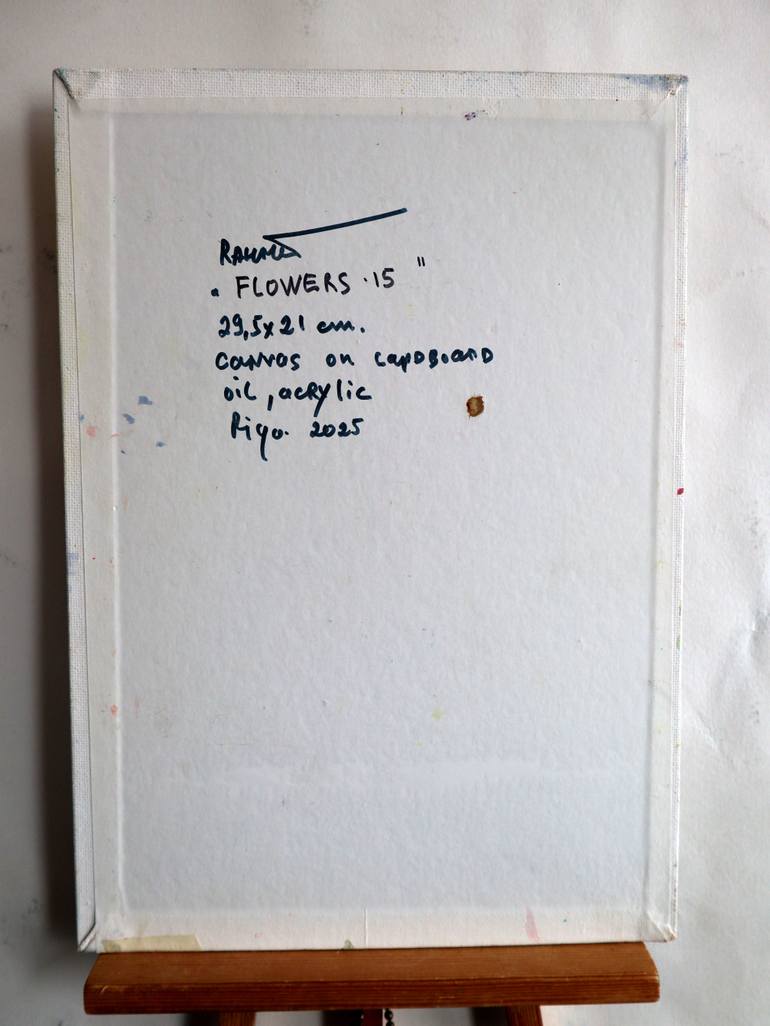 „ FLOWERS ·15 "
29,5x21 cm.
canvas on cardboard
oil, acrylic
Riga. 2025